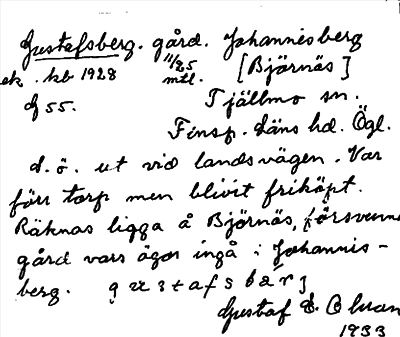 Gustafsberg. gård. Johannisberg
ek. kb 1928 11/85 mtl. [Björnäs]
df 55. Tjällmo sn.
Finsp. läns hd. Ögl.
d. ö. ut vid landsvägen. Var
förr torp men blivit friköpt.
Räknas ligga å Björnäs, försvunnen
gård vars ägor ingå i Johannis-
berg. gustafsbärj
Gustaf
1933